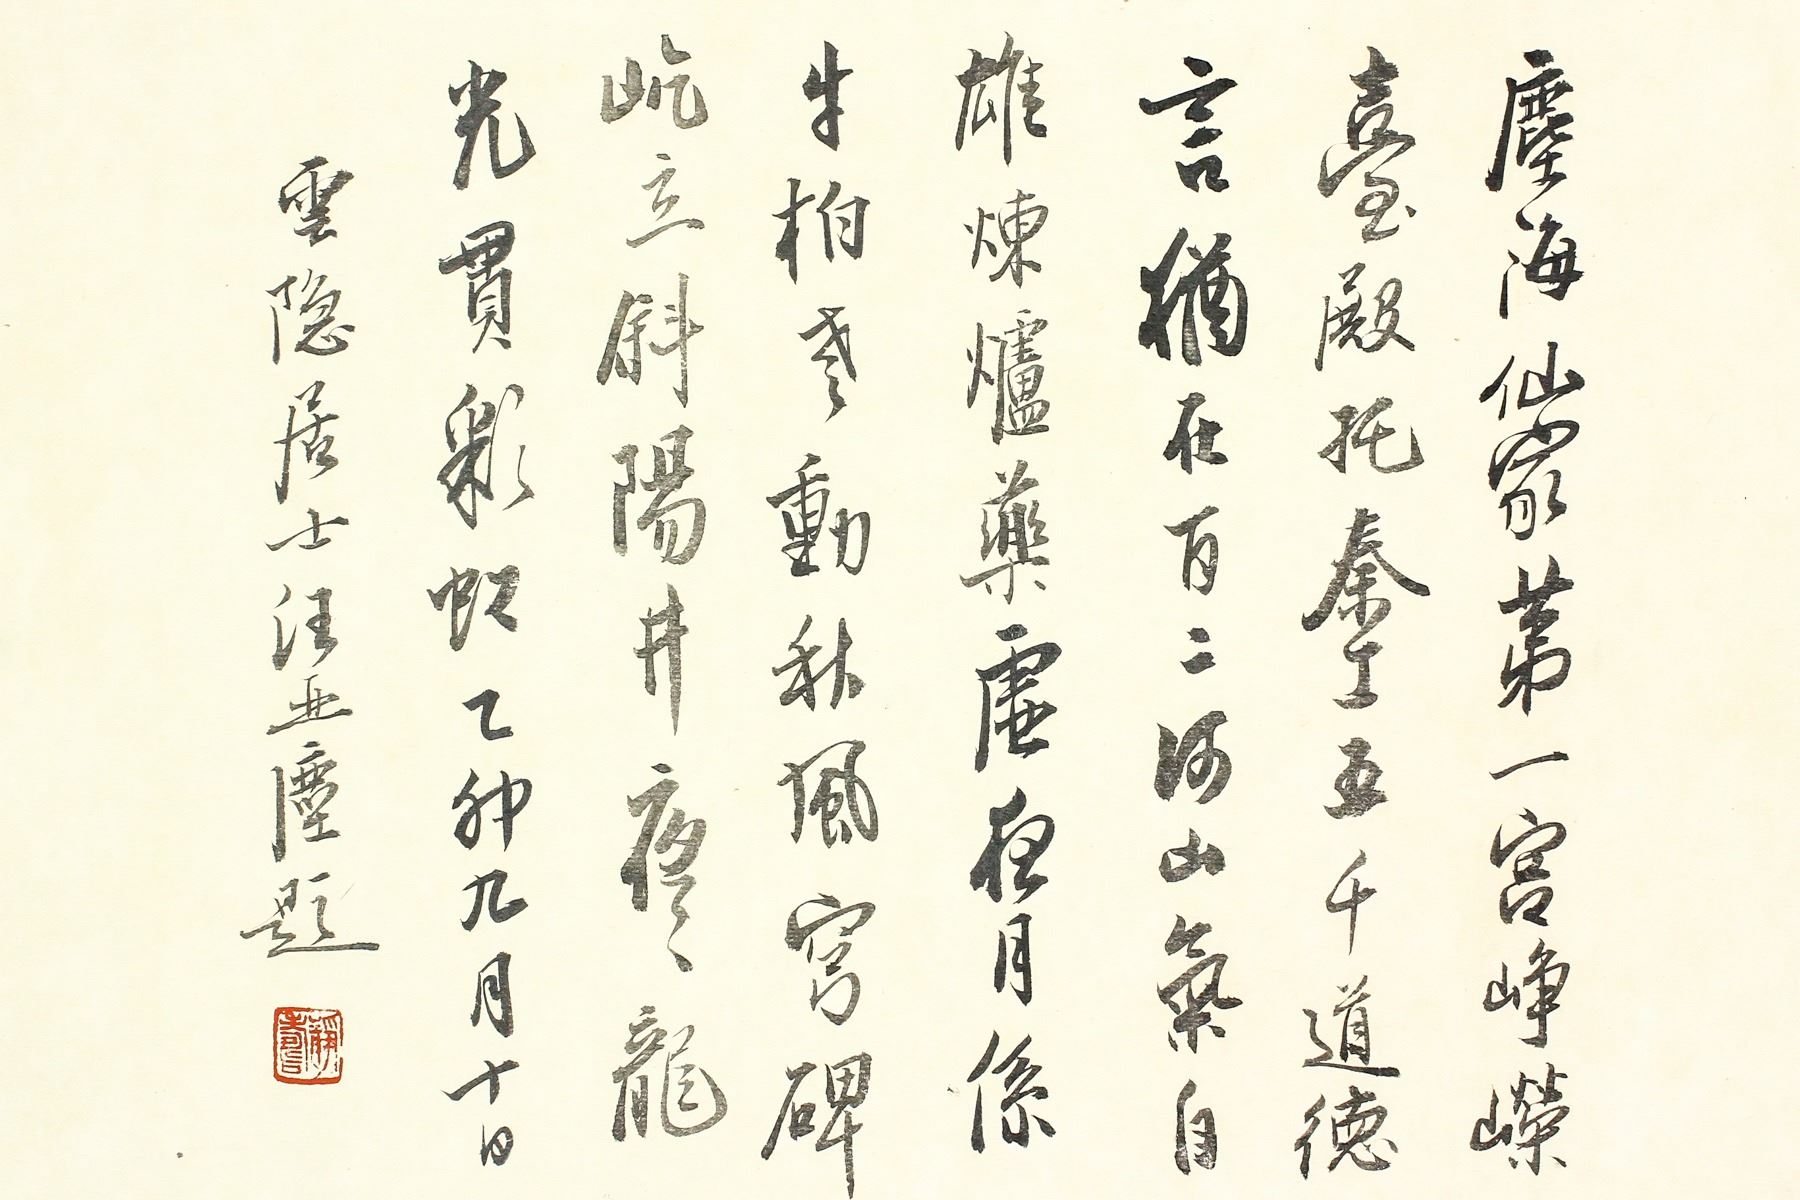 塵海仙家第一宮崢嶸
臺殿托秦中五千道德
言猶在百二河山氣自
雄煉爐藥虛夜月係
牛柏老動秋風穹碑
屹立斜陽井底龍
光貫彩虹乙卯九月十日
雲隐居士汪亞塵題